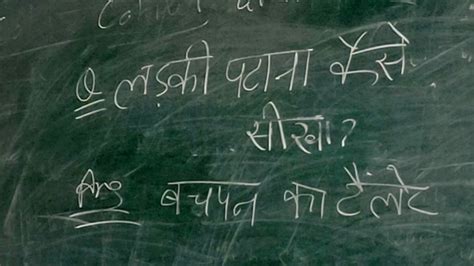 Q लड़की पटाना कैसे
सीखा?
Ans बचपन का टैलेंट